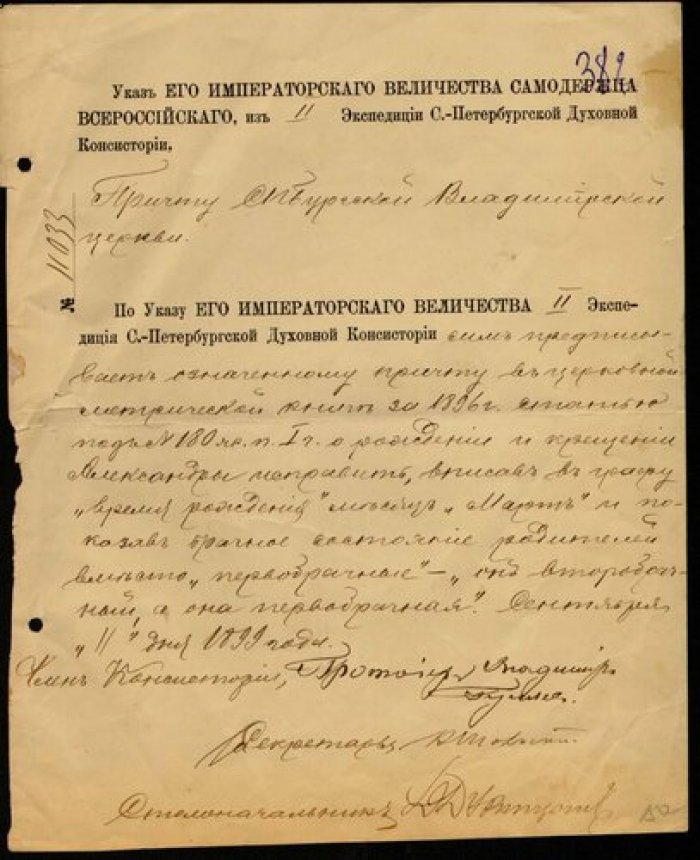 382
Указъ ЕГО ИМПЕРАТОРСКАГО ВЕЛИЧЕСТВА САМОДЕРЖЦА
ВСЕРОССІЙСКАГО, изъ II Экспедиціи С.-Петербургской Духовной
Консисторіи,
Причту СПбургской Владимірской
церкви.
№ 11033
По Указу ЕГО ИМПЕРАТОРСКАГО ВЕЛИЧЕСТВА II Экспе-
диція С.-Петербургской Духовной Консисторіи симъ предписы-
ваетъ означенному причту въ церковной
метрической книгѣ за 1896 г. статью
подъ № 180 I ч. о рожденіи и крещеніи
Александры исправить, вписавъ въ графу
„время рожденія" мѣсяцъ „Мартъ" и по-
казавъ брачное состояніе родителей
вмѣсто „первобрачные" — „онъ второбрач-
ный, а она первобрачная". Сентября
„11" дня 1899 года.
Членъ Консисторіи, Протоіерей Владимір
Секретарь
Столоначальникъ